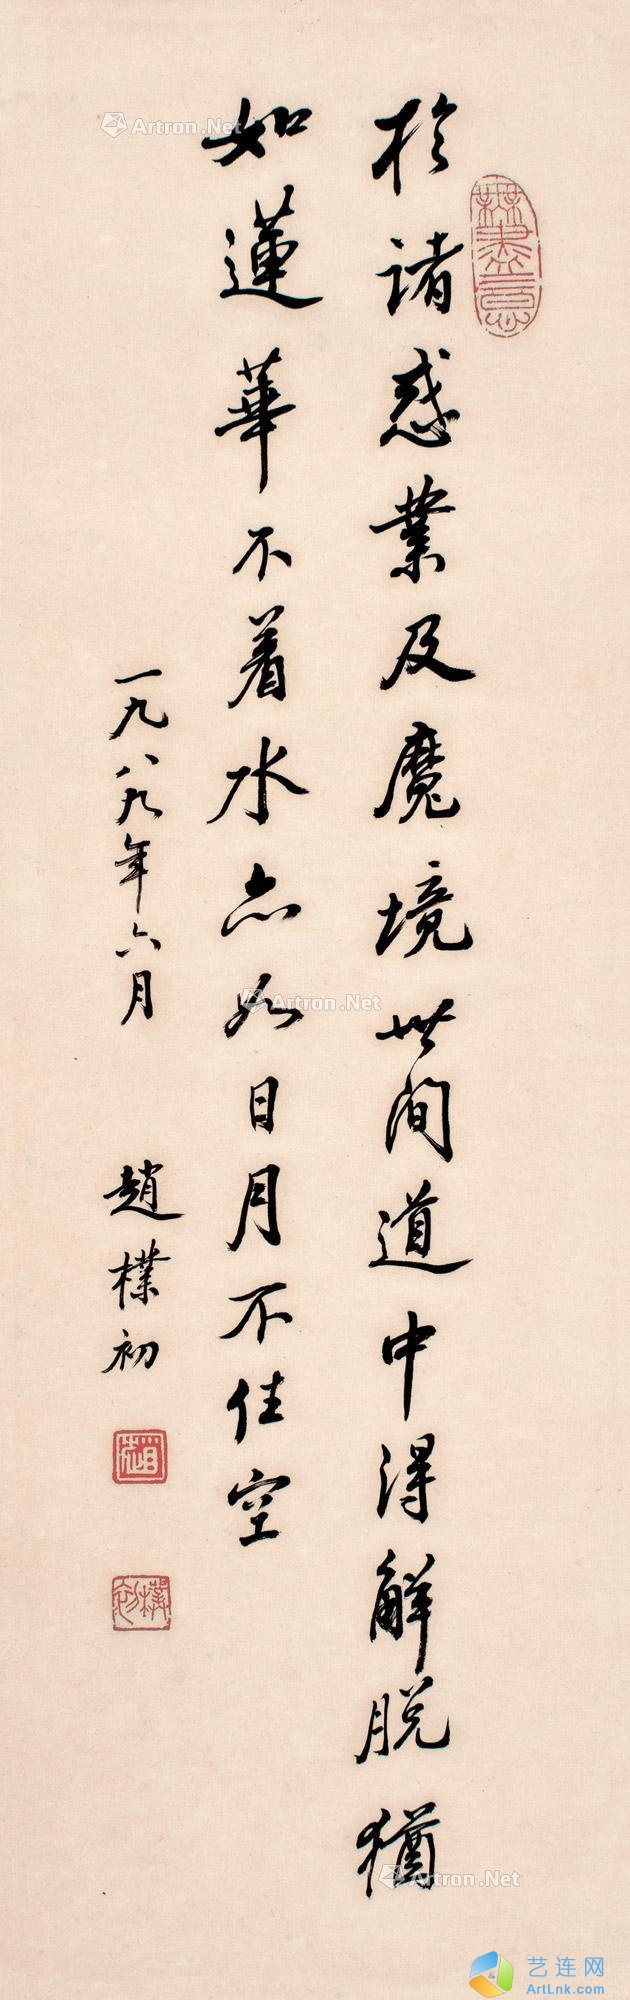 於諸惑業及魔境世间道中得解脱猶
如蓮華不着水亦如日月不住空
一九八九年六月
趙樸初
無盡意
趙
樸初
Artron.Net
Artron.Net
Artron.Net
艺连网
ArtLnk.com